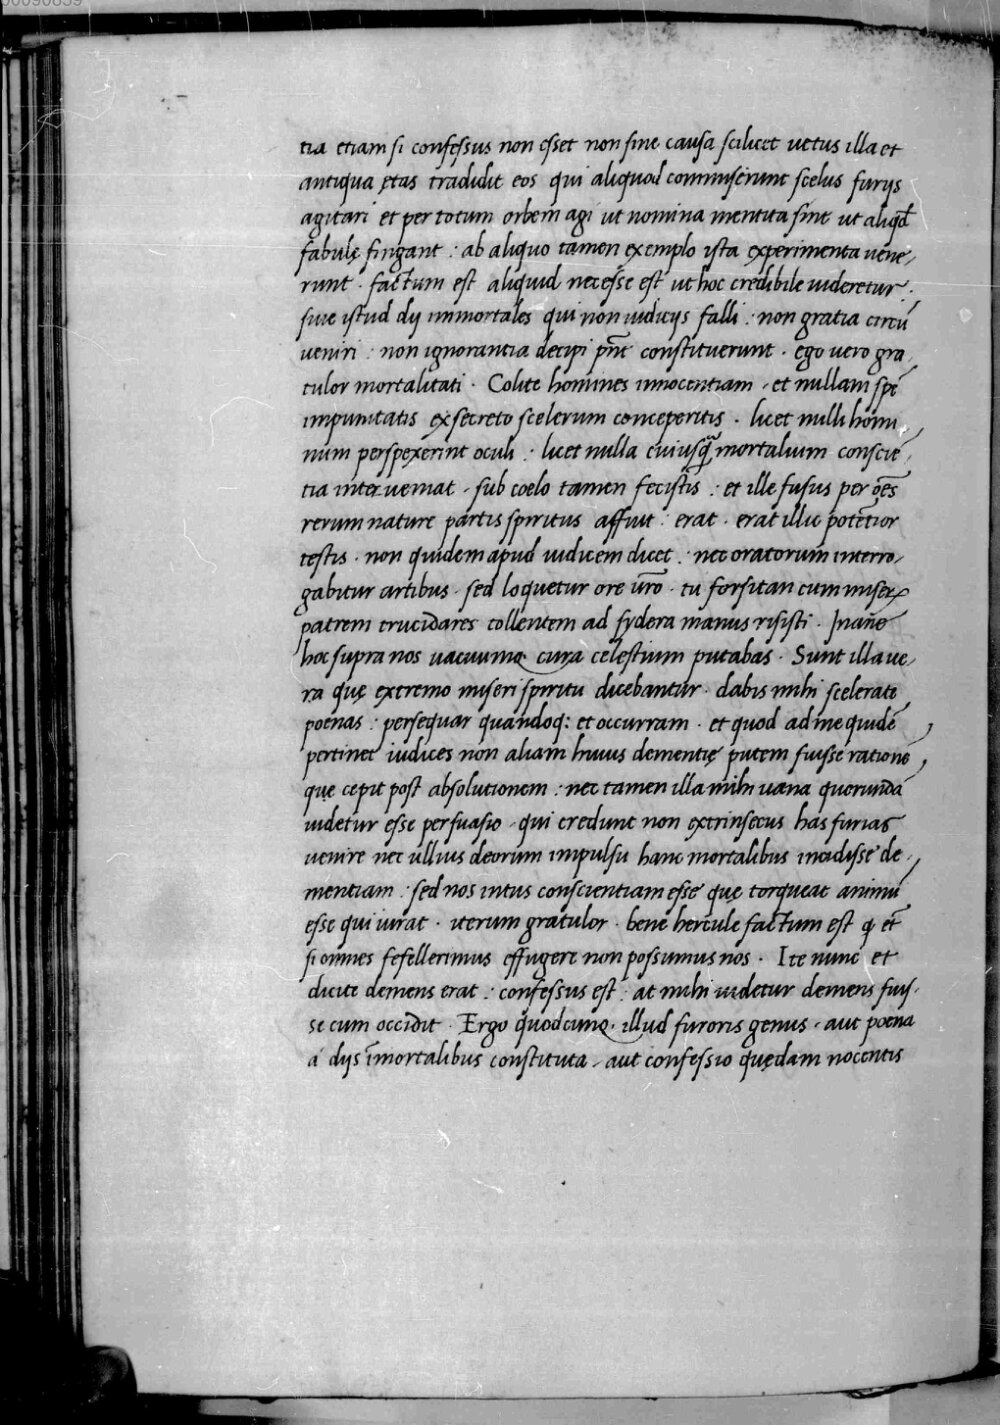 tia etiam si confessus non esset non sine causa scilicet uetus illa et
antiqua ętas tradidit eos qui aliquod commiserunt scelus furijs
agitari et per totum orbem agi ut nomina mentita sint ut aliqd̄
fabulę fingant : ab aliquo tamen exemplo ista experimenta uene-
runt · factum est aliquid necesse est ut hoc credibile uideretur :
siue istud dij immortales qui non iudicijs falli : non gratia circū
ueniri : non ignorantia decipi pn̄t constituerunt · ego uero gra
tulor mortalitati · Colite homines innocentiam · et nullam spē
impunitatis ex secreto scelerum conceperitis · licet nulli homi
num perspexerint oculi : licet nulla cuiusq̄ mortalium conscie-
tia interueniat · sub coelo tamen fecistis : et ille fusus per oēs
rerum nature partis spiritus affuit : erat · erat illic potentior
testis · non quidem apud iudicem dicet : nec oratorum interro-
gabitur artibus · sed loquetur ore ur̄o · tu forsitan cum miserꝝ
patrem trucidares tollentem ad sydera manus risisti · Inane
hoc supra nos uacuumq; cura celestium putabas · Sunt illa ue-
ra quę extremo miseri spiritu dicebantur · dabis mihi scelerate
poenas : persequar quandoq: et occurram · et quod ad me quidē
pertinet iudices non aliam huius dementię putem fuisse rationē
quę cepit post absolutionem : nec tamen illa mihi uana quorundā
uidetur esse persuasio · qui credunt non extrinsecus has furias
uenire nec ullius deorum impulsu hanc mortalibus incidisse de-
mentiam : sed nos intus conscientiam esse quę torqueat animū
esse qui iurat · iterum gratulor · bene hercule factum est q et̄
si omnes fefellerimus effugere non possumus nos · Ite nunc et
dicite demens erat : confessus est : at mihi uidetur demens fuis-
se cum occidit · Ergo quodcunq; illud furoris genus · aut poena
a dijs īmortalibus constituta · aut confessio quędam nocentis